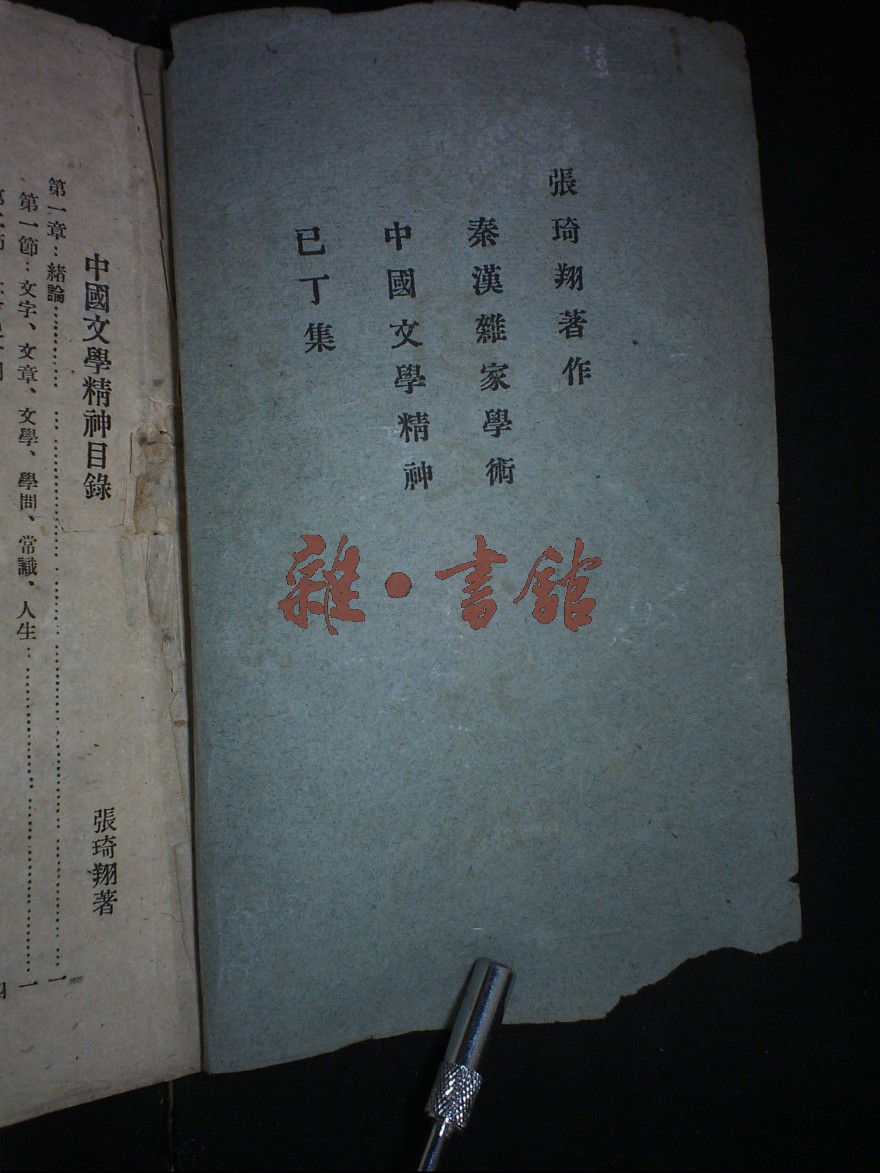 張琦翔著作
秦漢雜家學術
中國文學精神
已丁集
雜·書館
中國文學精神目錄
張琦翔著
第一章：緒論 一
第一節：文字、文章、文學、學問、常識、人生 一